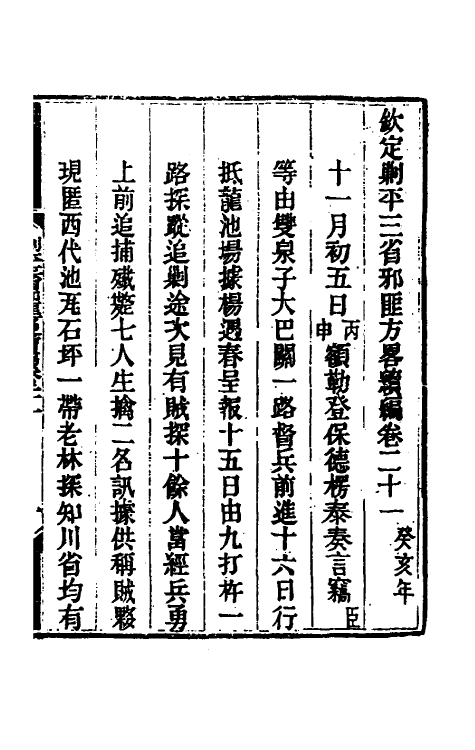 欽定剿平三省邪匪方畧續編卷二十一 癸亥年
十一月初五日丙申額勒登保德楞泰奏言竊臣
等由雙泉子大巴關一路督兵前進十六日行
抵龍池場據楊遇春呈報十五日由九打杵一
路探蹤追剿途次見有賊探十餘人當經兵勇
上前追捕殲斃七人生擒二名訊據供稱賊夥
現匿西代池瓦石坪一帶老林探知川省均有